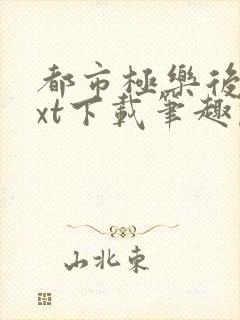 都市極樂後
xt下載筆趣
山北東